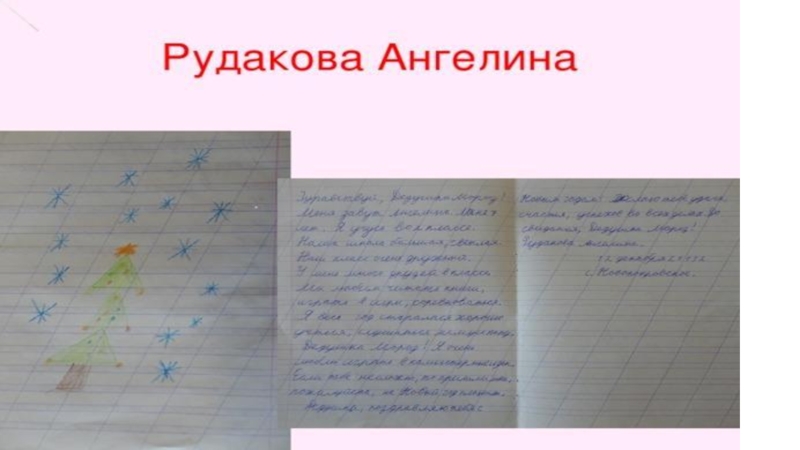 Рудакова Ангелина
Здравствуй, Дедушка Мороз!
Меня зовут Ангелина. Мне 7
лет. Я учусь в 1 классе.
Наша школа большая, светлая.
Наш класс очень дружный.
У меня много друзей в классе.
Мы любим читать книги,
играть в игры, соревноваться.
Я весь год старалась хорошо
учиться,
Дедушка Мороз! Я очень
люблю играть в
Если тебе не сложно,
пожалуйста, на Новый год
Дедушка, поздравляю тебя с
Новым годом! Желаю тебе удачи,
счастья, успехов во всех делах. До
свидания, Дедушка Мороз!
Рудакова Ангелина.
12 декабря
с. Новопокровское.